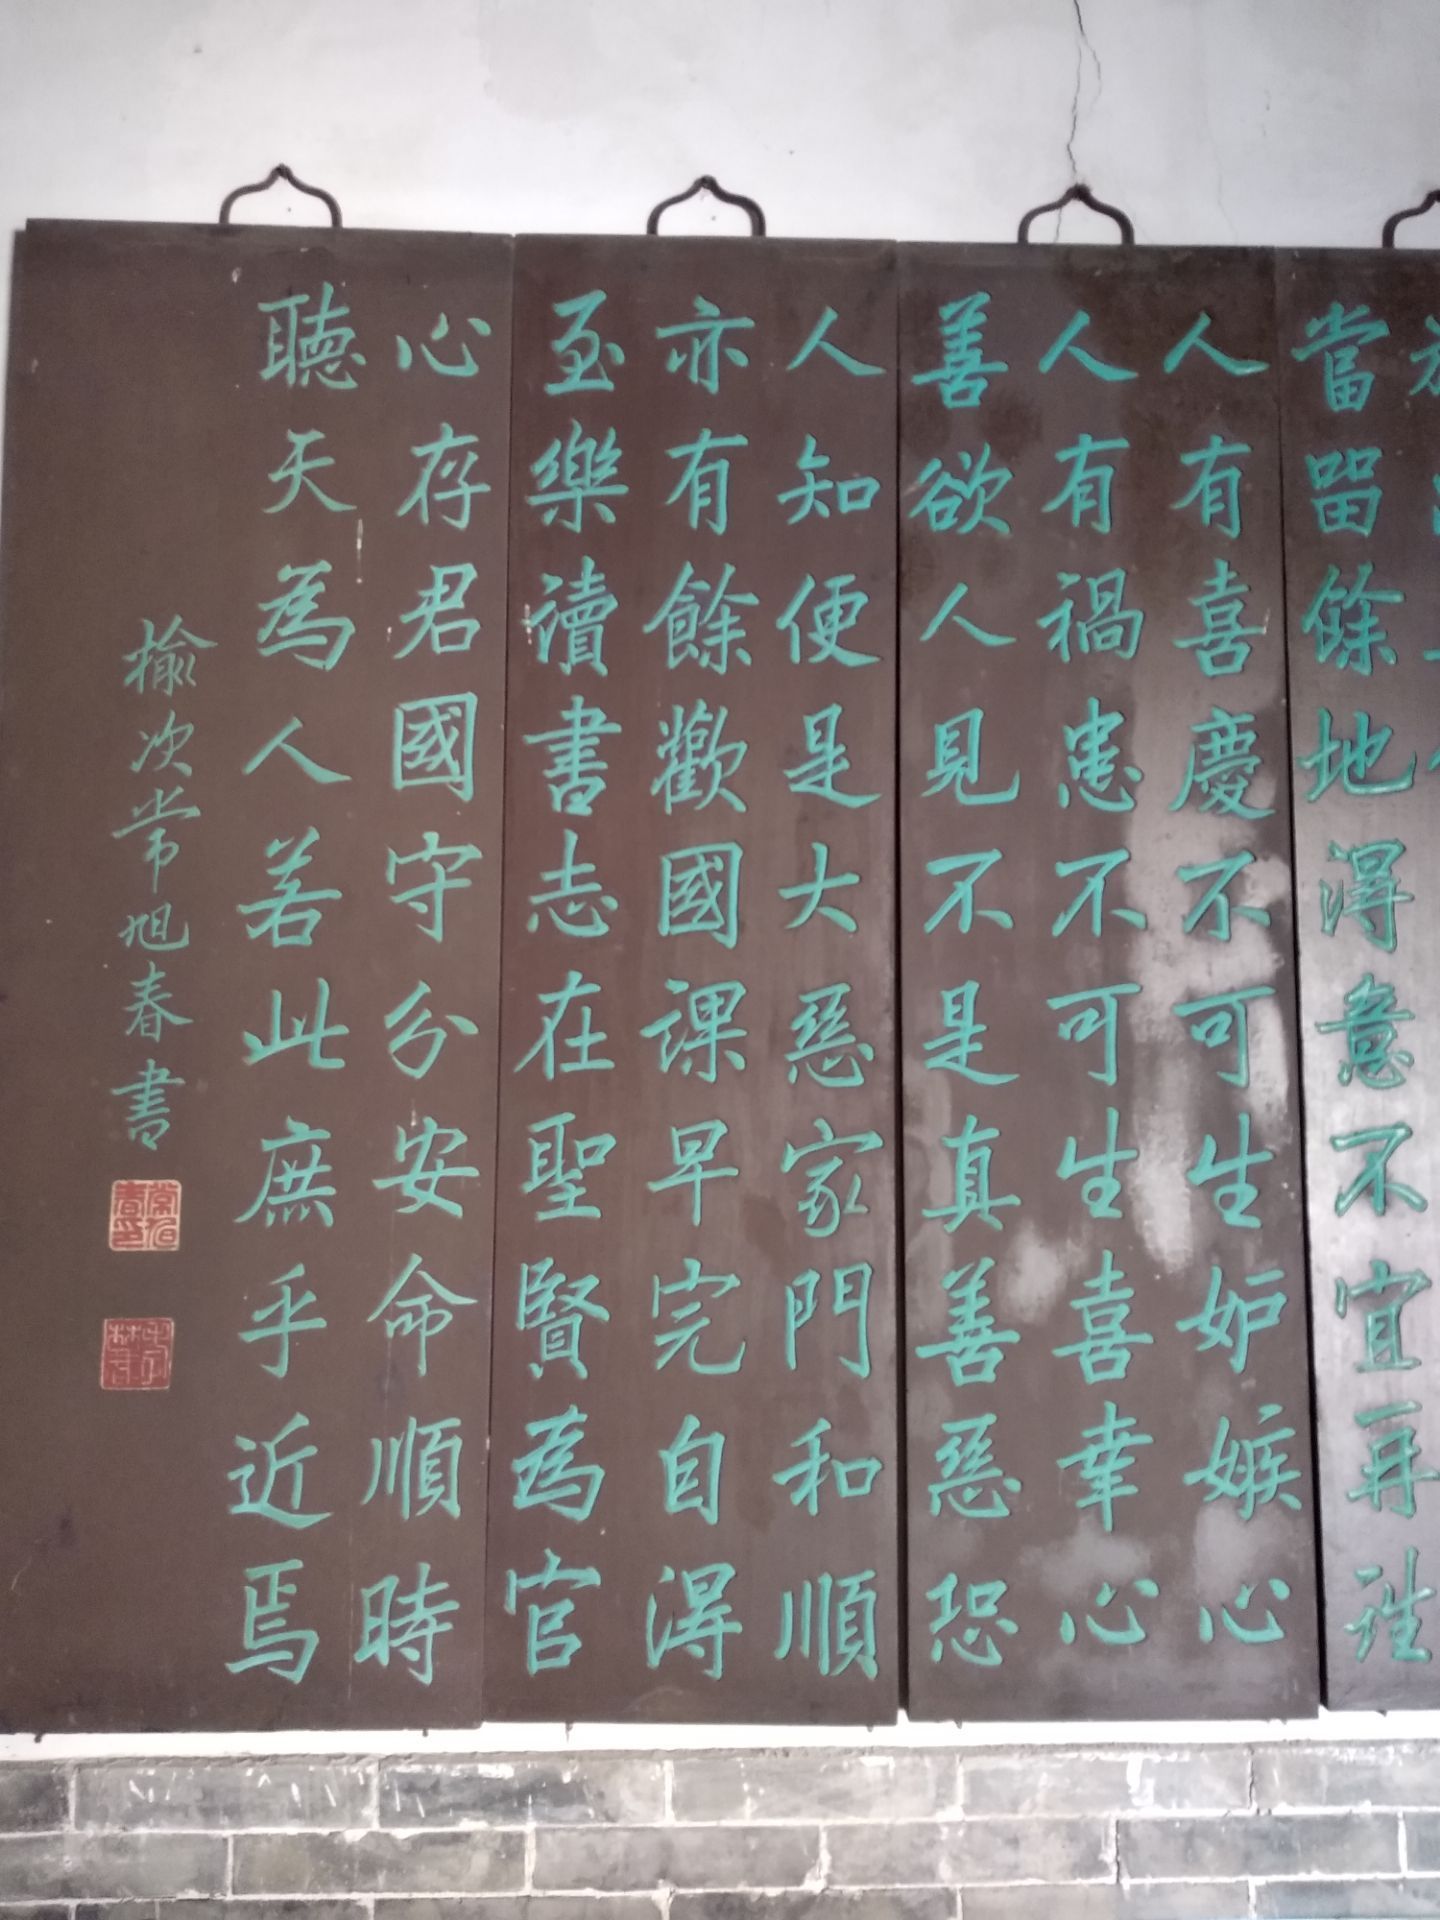 當留餘地得意不宜再往
人有喜慶不可生妒嫉心
人有禍患不可生喜幸心
善欲人見不是真善惡恐
人知便是大惡家門和順
亦有餘歡國課早完自得
至樂讀書志在聖賢為官
心存君國守分安命順時
聽天為人若此庶乎近焉
榆次常旭春書